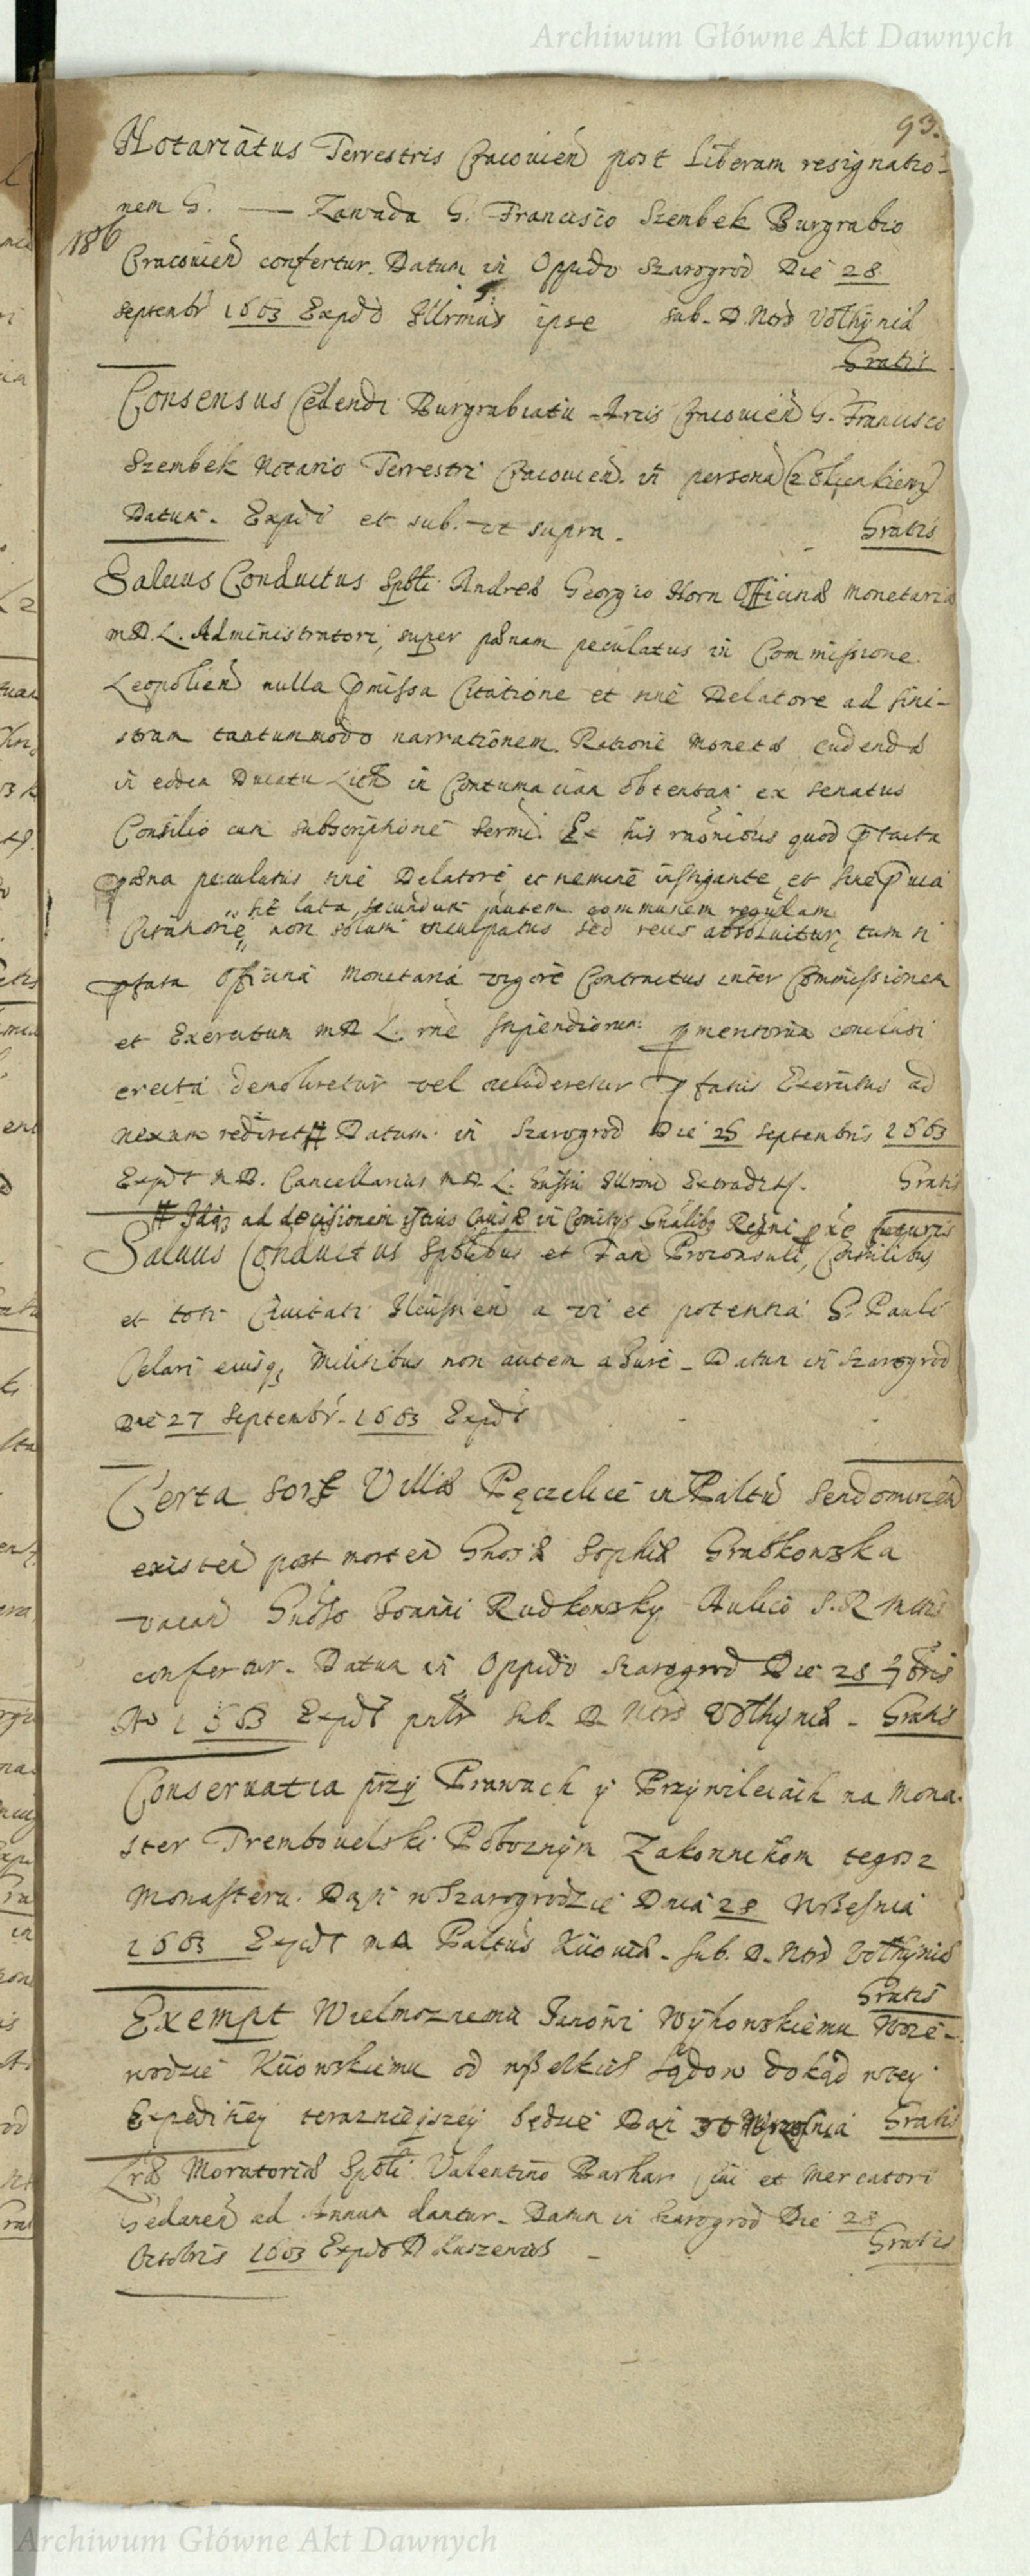 Archiwum Główne Akt Dawnych
93.
Notariatus Terrestris Cracovien post Liberam resignatio-
nem G. — Zawada G. Francisco Szembek Burgrabio
186
Cracovien confertur. Datum in Oppido Szarogrod Die 28
Septembr 1663 Expdd Illrmus ipse sub. D. Nord Volhynia
Gratis
Consensus Cedendi Burgrabiatu Arcis Cracovien G. Francisco
Szembek Notario Terrestri Cracovien. in persona
Datum. Expdt et sub. ut supra. Gratis
Salvus Conductus Spbli Andreæ Georgio Horn Officinæ Monetariæ
M.D.L. Administratori, super pænam peculatus in Commissione
Leopolien nulla pmissa Citatione et sine Delatore ad sini-
stram tantummodo narrationem. Ratione Monetæ cudendæ
in eodem Ducatu Lith in Contumaciam obtentam ex Senatus
Consilio cum subscriptione Sermi. Ex his raonibus quod ptacta
pæna peculatus sine Delatore, et nemine instigante, et sine pvia
sit lata, secundum autem communem regulam
Citatione non solum inculpatus sed reus absolvitur, tum ni
pfata Officina Monetaria vigore Contractus inter Commissionem
et Exercitum M.D.L. rne stipendiorum pmentorum conclusi
erecta demoliretur vel occluderetur pfatus Exercitus ad
nexum rediret # Datum in Szarogrod Die 26 Septembris 1663
Expdt M.D. Cancellarius M.D.L. Illrmi Extradits. Gratis
# Idq3 ad decisionem istius causæ in Comitys Gnalibq Regni pxe futuris
Salvus Conductus Spblibus et Fam Proconsuli, Consulibus
et toti Civitati a vi et potentia G. Pauli
Celari eiusq3 Militibus non autem a Jure. Datum in Szarogrod
Die 27 Septembr. 1663 Expdt
Certa Sors Villæ Pęczelice in Paltu Sendomirien
existen post mortem Gnosæ Sophiæ Grabkowska
vacan Gnoso Joanni Rudkowsky Aulico S.R.Mtis
confertur. Datum in Oppido Szarogrod Die 28 7bris
Ao 1663 Expdt Sub. D. Nord Volhyniæ. Gratis
Conservatia przy Prawach y Przywileiach na Mona-
ster Trembovelski Pobożnym Zakonnikom tegosz
Monasteru. Dan w Szarogrodzie Dnia 28 Wrzesnia
1663 Expdt M.D. Paltus Kiiovien. sub. D. Nord Volhyniæ
Gratis
Exempt Wielmoznemu Janowi Wyhowskiemu Woie-
wodzie Kiiowskiemu od wszelkich sądow dokąd w tey
Expeditiey terazniejszey będzie Dan 30 Wrzesnia Gratis
Lræ Moratoriæ Spbli Valentino Barhar Civi et Mercatori
Gedanen ad Annum dantur. Datum in Szarogrod Die 28
Octobris 1663 Expdt D. Gratis
Archiwum Główne Akt Dawnych